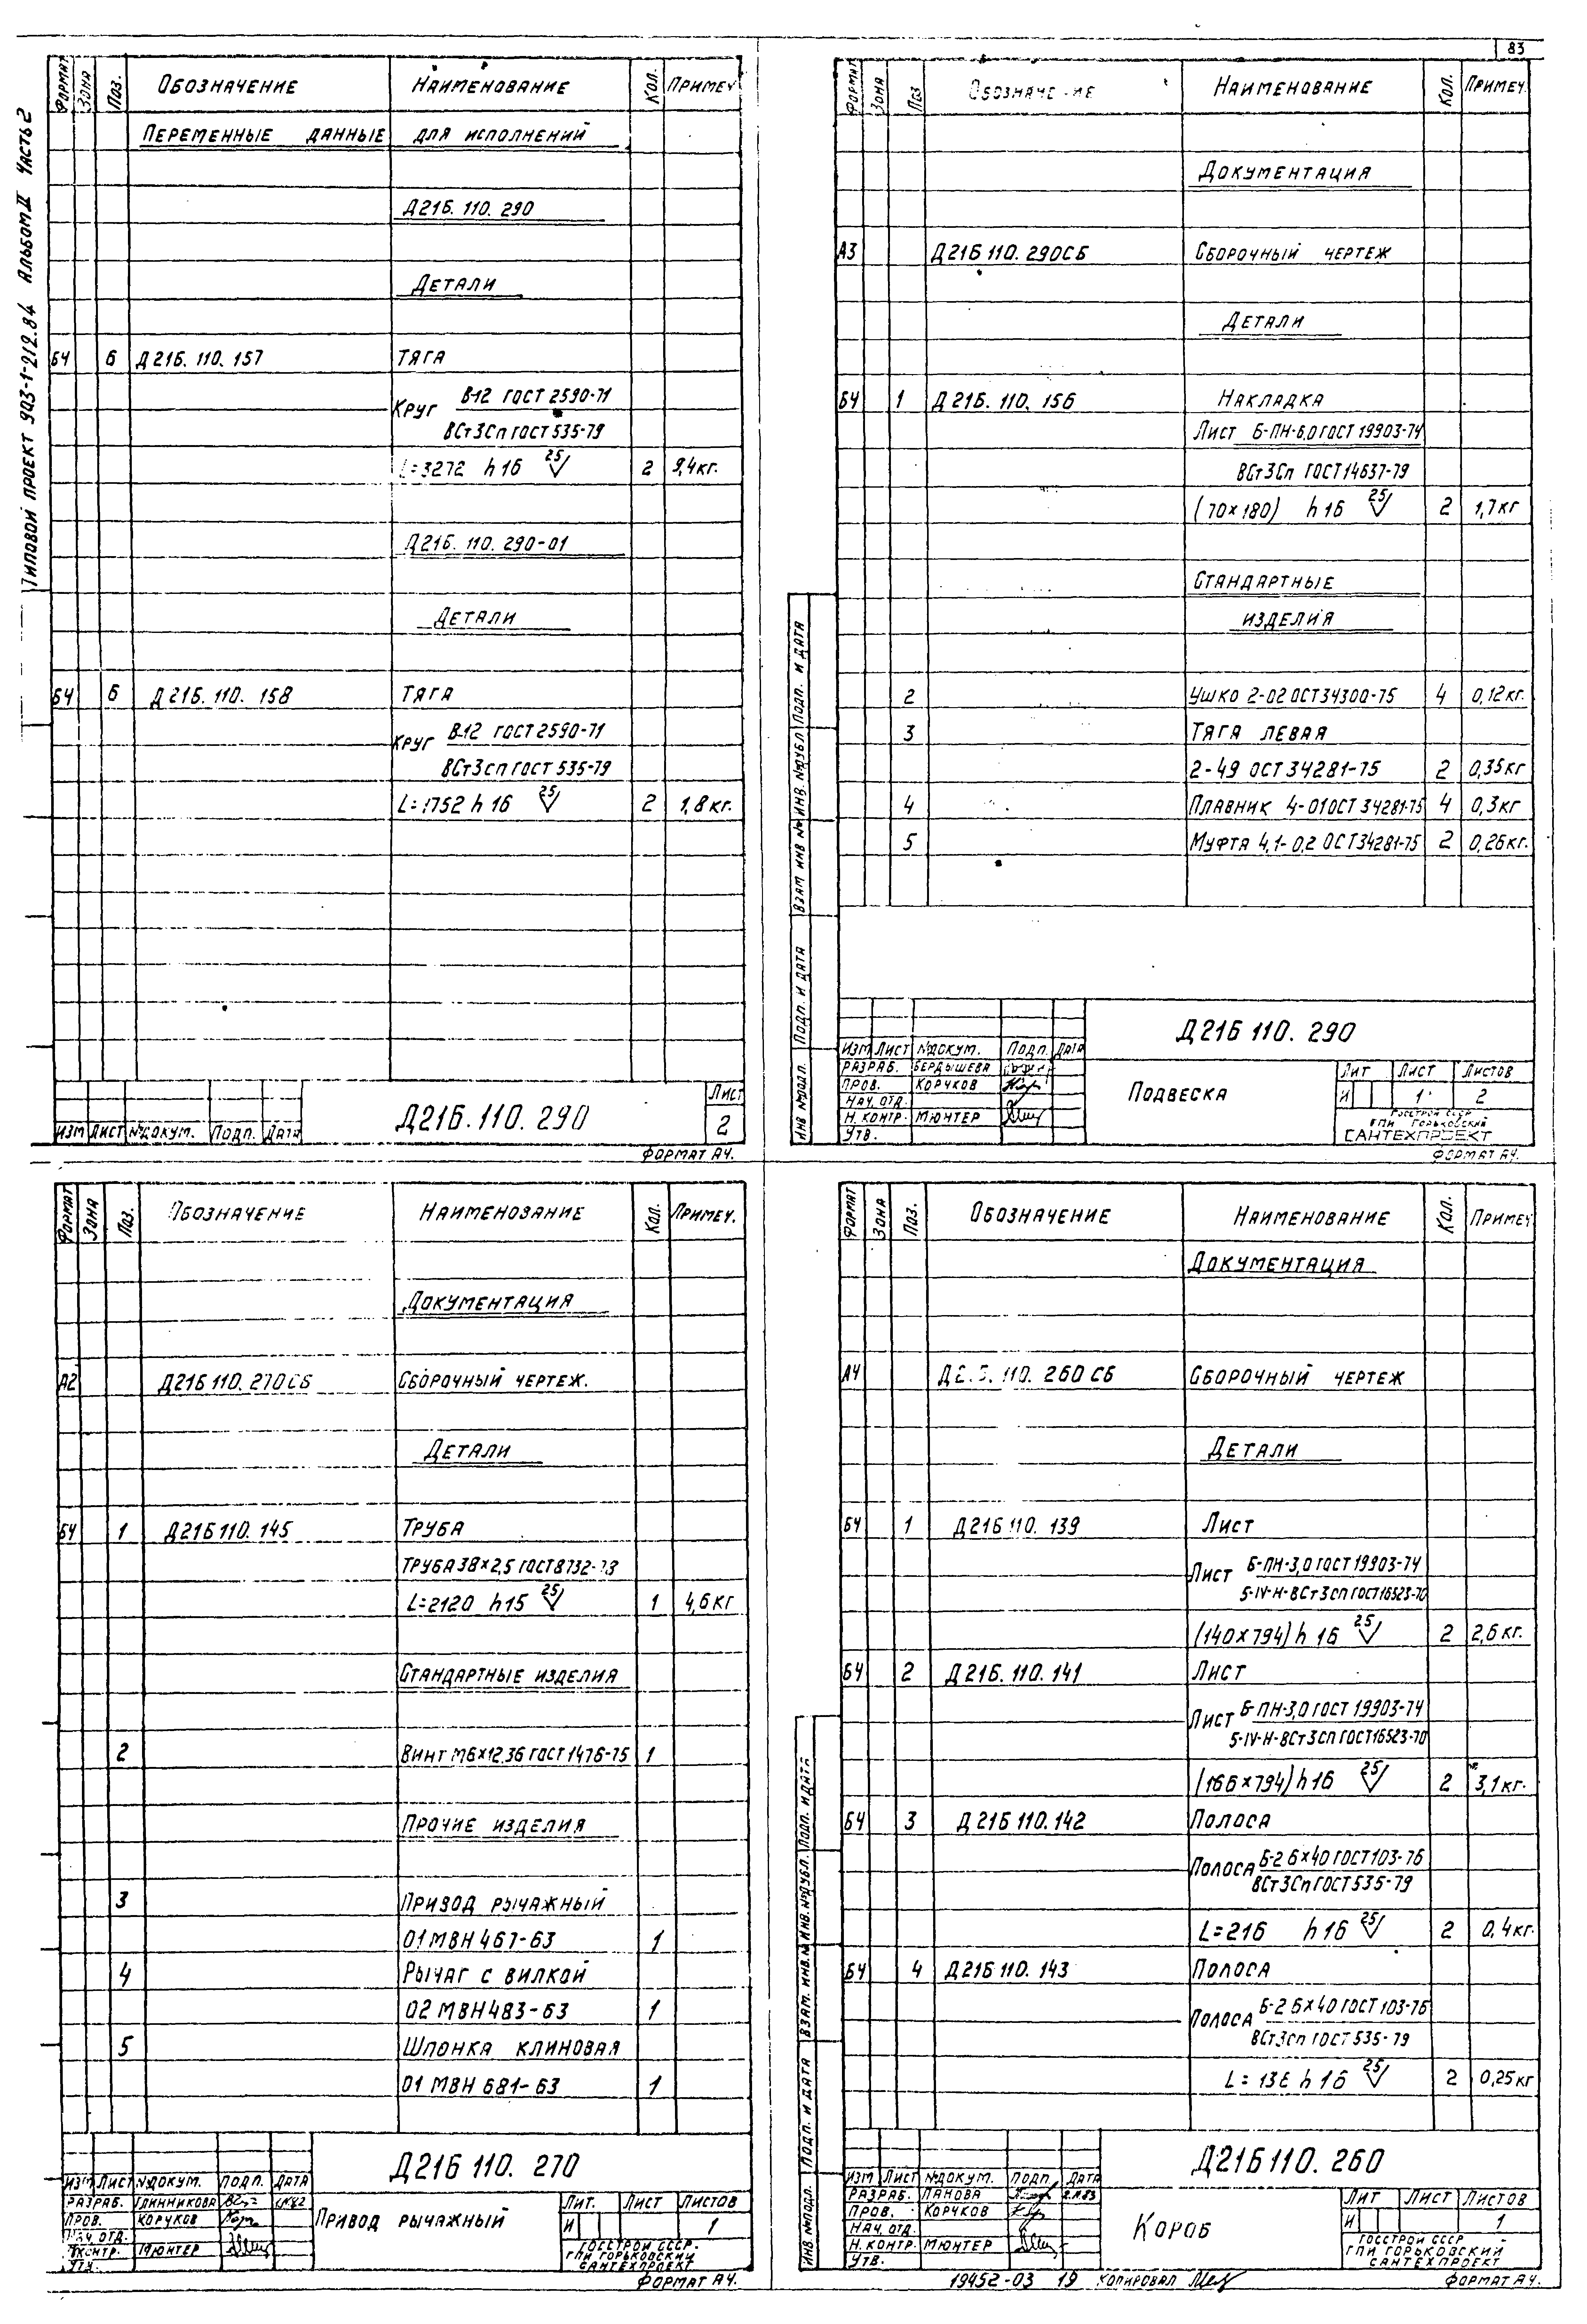 83
Типовой проект 903-1-212.84 Альбом II Часть 2
Формат Зона Поз. Обозначение Наименование Кол. Примеч
Переменные данные для исполнений
Д21Б.110.290
Детали
БЧ 6 Д21Б.110.157 Тяга
Круг В-12 ГОСТ 2590-71
ВСт3Сп ГОСТ 535-79
L=3272 h16 25 2 9,4кг.
Д21Б.110.290-01
Детали
БЧ 6 Д21Б.110.158 Тяга
Круг В-12 ГОСТ 2590-71
ВСт3сп ГОСТ 535-79
L=1752 h16 25 2 1,8кг.
Изм Лист №докум. Подп. Дата
Д21Б.110.290
Лист
2
Формат А4.
Формат Зона Поз Обозначение Наименование Кол. Примеч.
Документация
А3 Д21Б110.290СБ Сборочный чертеж
Детали
БЧ 1 Д21Б.110.156 Накладка
Лист Б-ПН-6,0 ГОСТ 19903-74
ВСт3Сп ГОСТ 14637-79
(70×180) h16 25 2 1,7кг
Стандартные
изделия
2 Ушко 2-02 ОСТ34300-75 4 0,12кг.
3 Тяга левая
2-49 ОСТ 34281-75 2 0,35кг
4 Плавник 4-01 ОСТ 34281-75 4 0,3кг
5 Муфта 4,1-0,2 ОСТ34281-75 2 0,26кг.
Инв №подл. Подп. и дата Взам инв № Инв. №дубл Подп. и дата
Д21Б 110.290
Изм Лист №докум. Подп. Дата
Разраб. Бердышева
Пров. Корчков
Нач. отд.
Н. контр. Мюнтер
Утв.
Подвеска
Лит Лист Листов
И 1 2
Госстрой СССР
ГПИ Горьковский
Сантехпроект
Формат А4.
Формат Зона Поз. Обозначение Наименование Кол. Примеч.
Документация
А2 Д21Б110.270СБ Сборочный чертеж.
Детали
БЧ 1 Д21Б110.145 Труба
Труба 38×2,5 ГОСТ 8732-
L=2120 h15 25 1 4,6кг
Стандартные изделия
2 Винт М6×12.36 ГОСТ 1476-75 1
Прочие изделия
3 Привод рычажный
01 МВН 467-63 1
4 Рычаг с вилкой
02 МВН 483-63 1
5 Шпонка клиновая
01 МВН 681-63 1
Д21Б 110.270
Изм Лист №докум. Подп. Дата
Разраб. Глинникова
Пров. Корчков
Нач. отд.
Н.контр. Мюнтер
Утв.
Привод рычажный
Лит. Лист Листов
И 1
Госстрой СССР.
ГПИ Горьковский
Сантехпроект
Формат А4.
Формат Зона Поз. Обозначение Наименование Кол. Примеч
Документация
А4 110.260 СБ Сборочный чертеж
Детали
БЧ 1 Д21Б110.139 Лист
Лист Б-ПН-3,0 ГОСТ 19903-74
5-IV-Н-ВСт3сп ГОСТ16523-70
(140×794) h16 25 2 2,6кг.
БЧ 2 Д21Б.110.141 Лист
Лист Б-ПН-3,0 ГОСТ 19903-74
5-IV-Н-ВСт3сп ГОСТ16523-70
(166×794) h16 25 2 3,1кг.
БЧ 3 Д21Б110.142 Полоса
Полоса Б-2 6×40 ГОСТ103-76
ВСт3Сп ГОСТ535-79
L=216 h16 25 2 0,4кг.
БЧ 4 Д21Б110.143 Полоса
Полоса Б-2 6×40 ГОСТ 103-76
ВСт3сп ГОСТ 535-79
h16 25 2 0,25кг
Инв. №подл. Подп. и дата Взам. инв.№ Инв. №дубл. Подп. и дата
Д21Б110.260
Изм Лист №докум. Подп. Дата
Разраб. Панова
Пров. Корчков
Нач. отд
Н.контр. Мюнтер
Утв.
Короб
Лит Лист Листов
И 1
Госстрой СССР
ГПИ Горьковский
Сантехпроект
19452-03 19 Копировал
Формат А4.